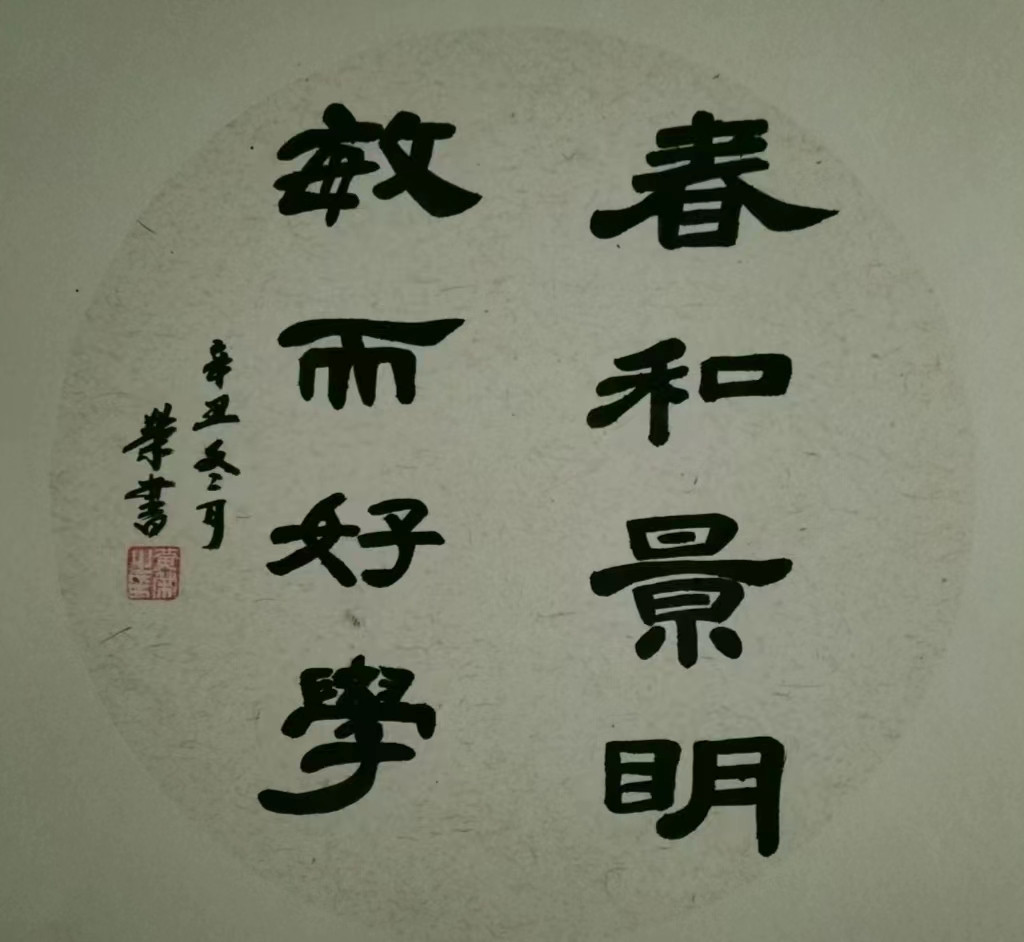 春和景明
敏而好學
辛丑冬月
榮書